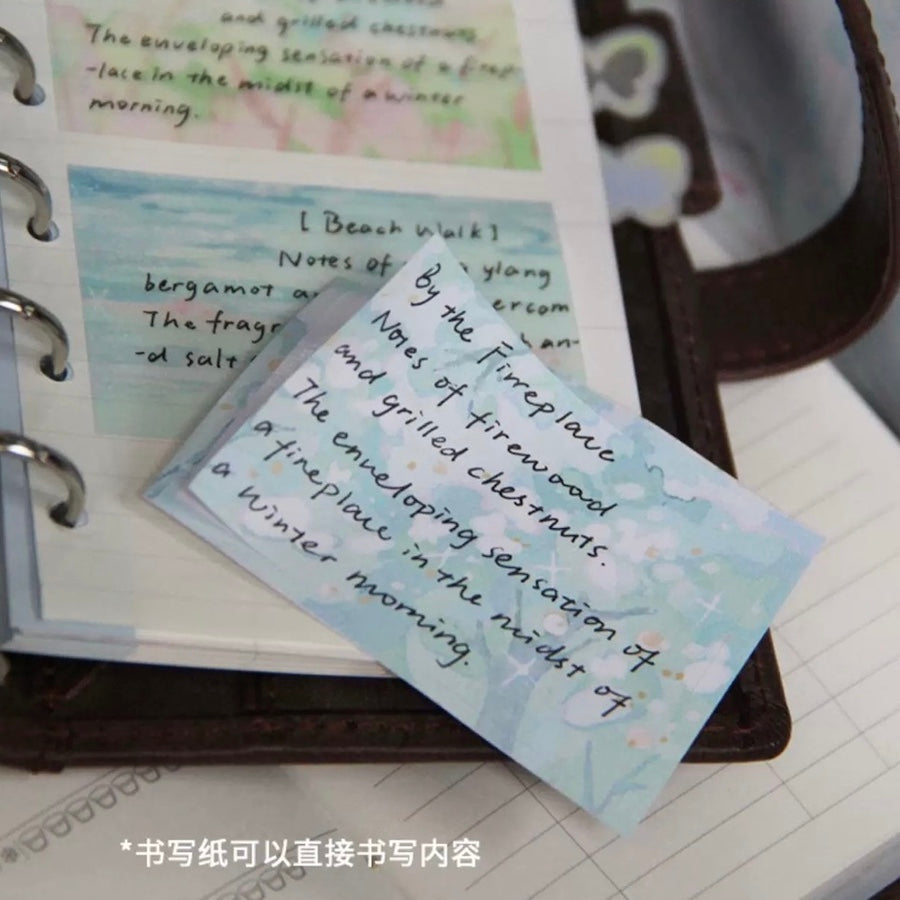 and grilled chestnuts
The enveloping sensation of a firep
-lace in the midst of a winter
morning.
[Beach Walk]
Notes of ylang
bergamot
The fragr
-d salt
By the Firreplace
Notes of firewood
and grilled chestnuts.
The enveloping sensation of
a fineplace in the midst of
a winter morning.
*书写纸可以直接书写内容